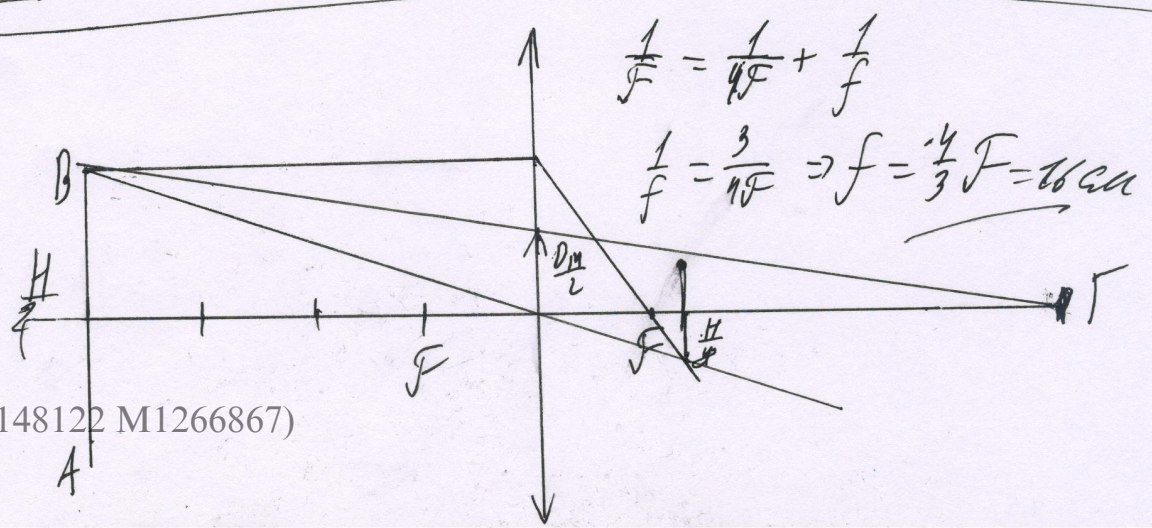 1/F = 1/4F + 1/f
1/f = 3/4F => f = 4/3 F = 16 см
B
Dм/2
H/2
Г
F
F
148122 M1266867)
A